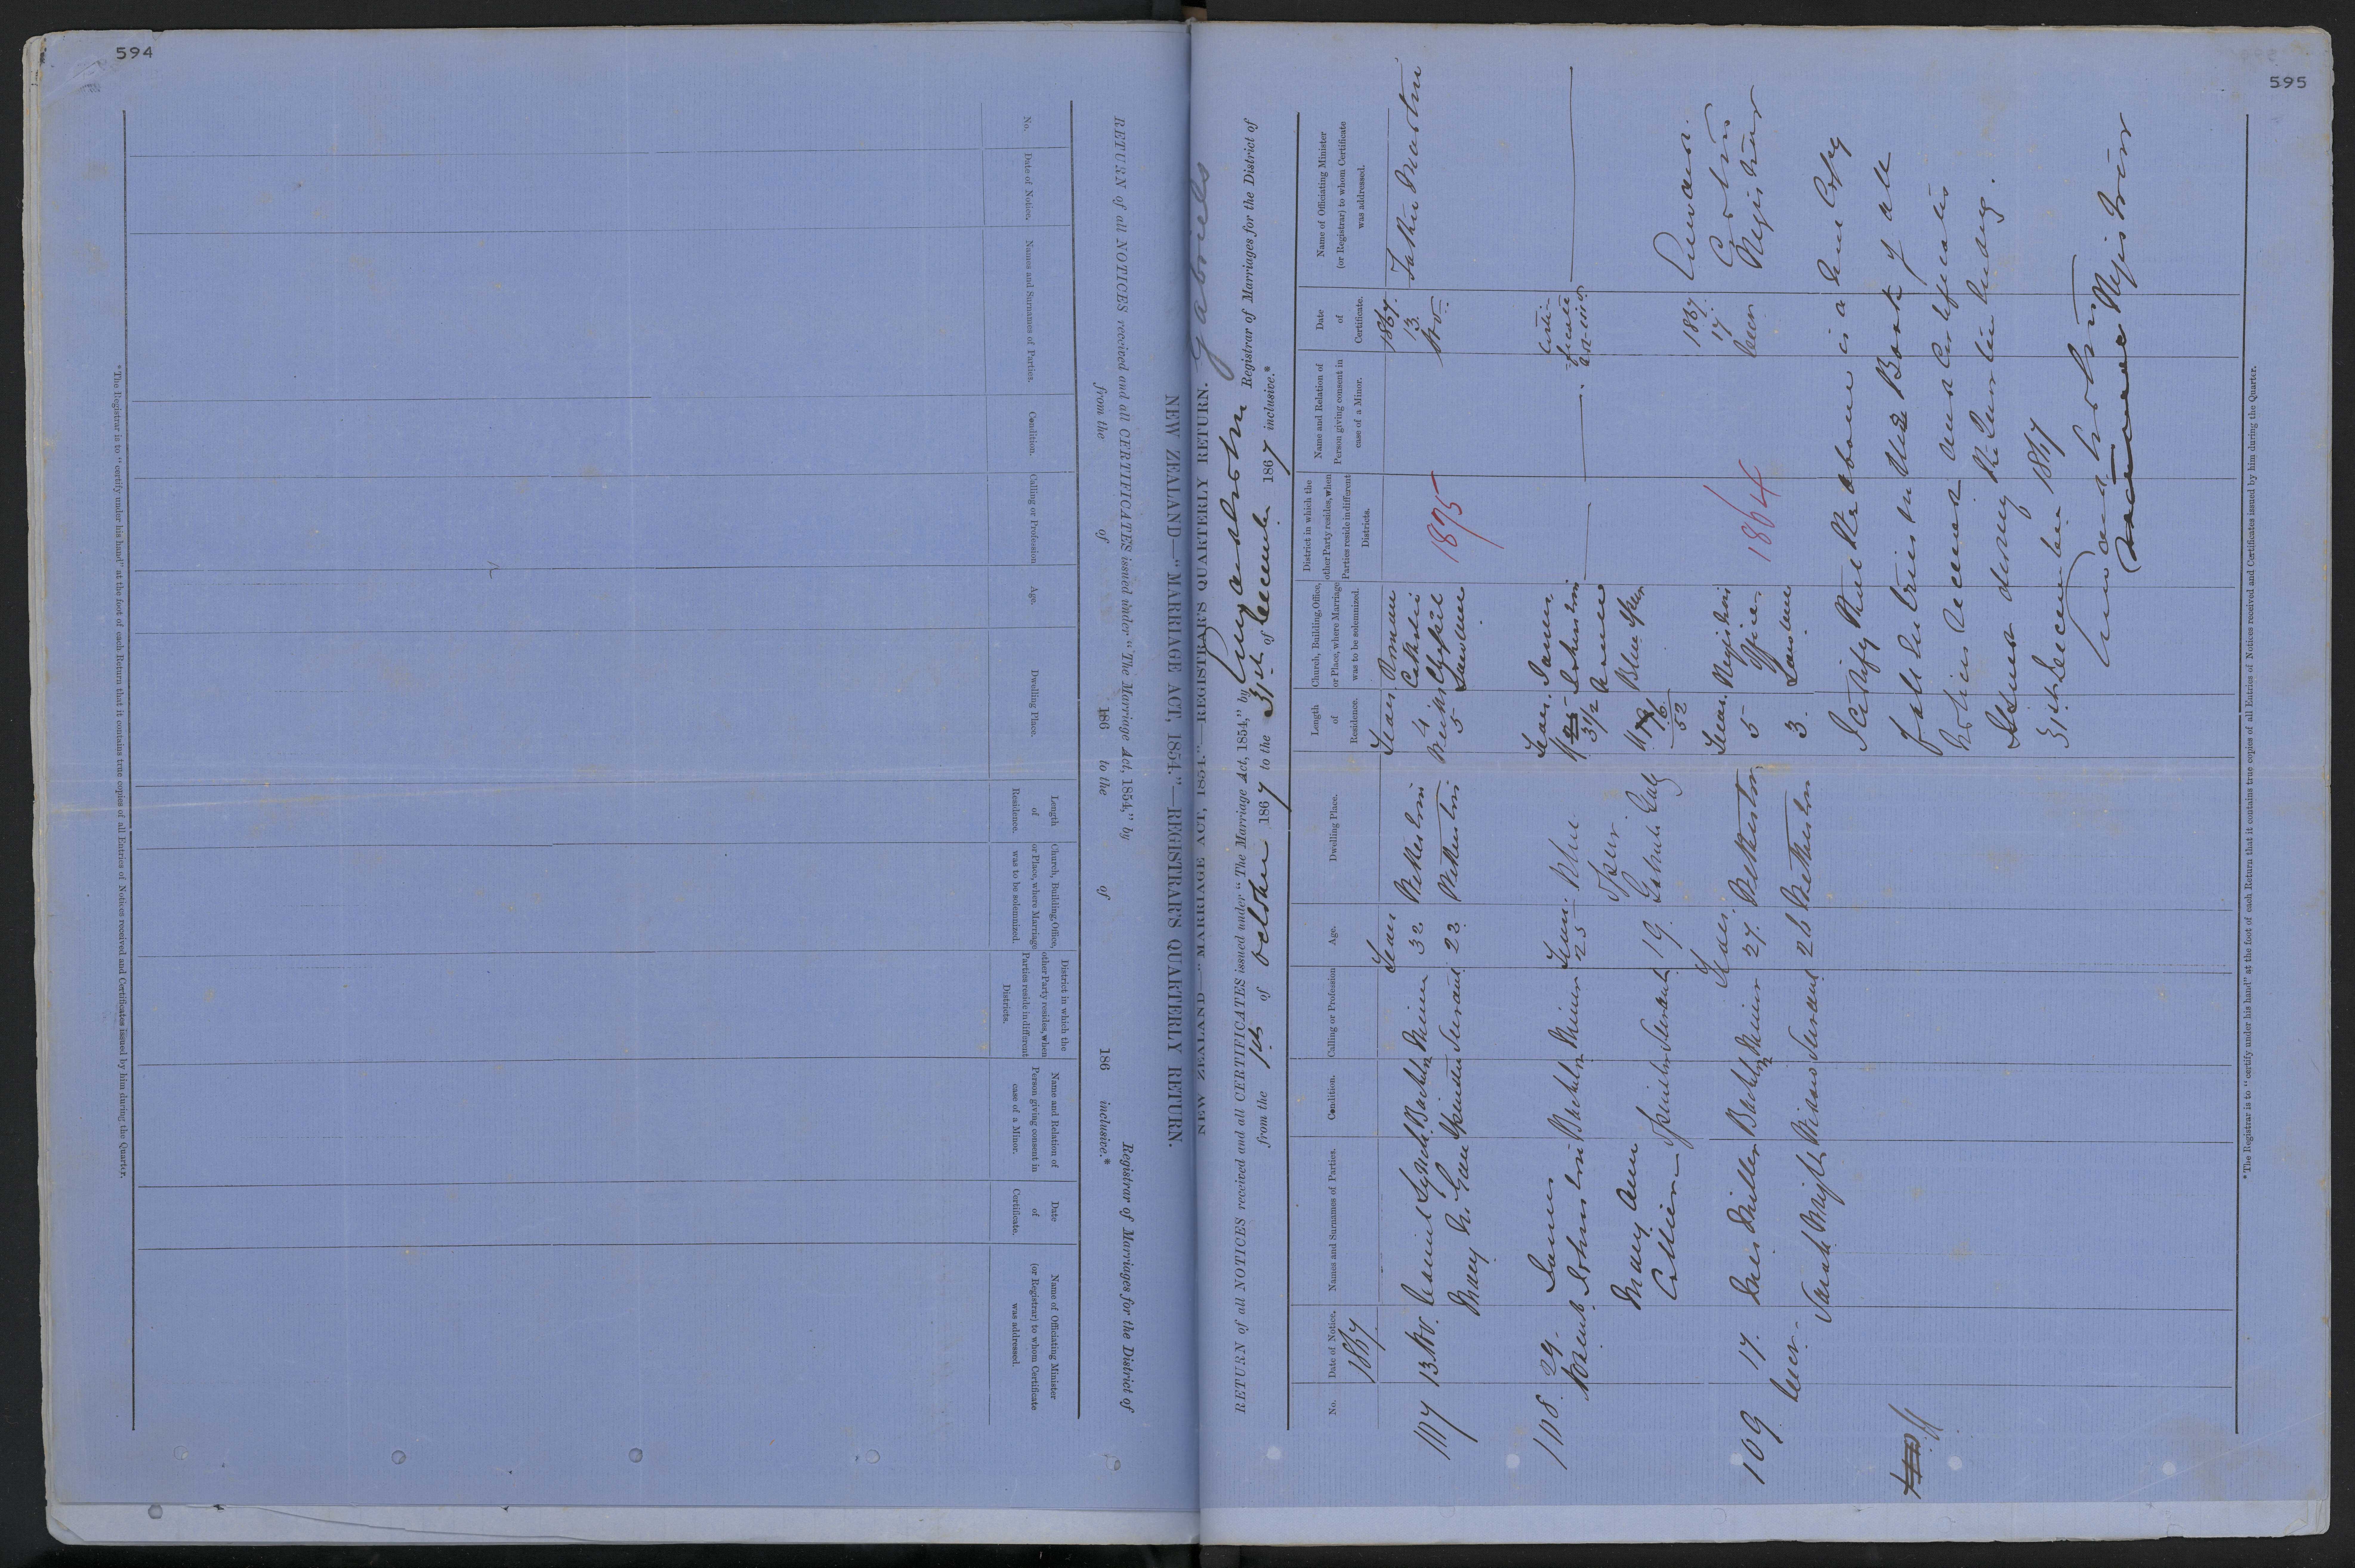 594
NEW ZEALAND—"MARRIAGE ACT, 1854."—REGISTRAR'S QUARTERLY RETURN.
RETURN of all NOTICES received and all CERTIFICATES issued under "The Marriage Act, 1854," by Registrar of Marriages for the District of
from the of 186 to the of 186 inclusive.*
No.
Date of Notice.
Names and Surnames of Parties.
Condition.
Calling or Profession
Age.
Dwelling Place.
Length of Residence.
Church, Building, Office, or Place, where Marriage was to be solemnized.
District in which the other Party resides, when Parties reside in different Districts.
Name and Relation of Person giving consent in case of a Minor.
Date of Certificate.
Name of Officiating Minister (or Registrar) to whom Certificate was addressed.
*The Registrar is to "certify under his hand" at the foot of each Return that it contains true copies of all Entries of Notices received and Certificates issued by him during the Quarter.
595
NEW ZEALAND—"MARRIAGE ACT, 1854."—REGISTRAR'S QUARTERLY RETURN. Gabriels
RETURN of all NOTICES received and all CERTIFICATES issued under "The Marriage Act, 1854," by Registrar of Marriages for the District of
from the 1st of October 1867 to the 31st of December 1867 inclusive.*
No.
Date of Notice.
Names and Surnames of Parties.
Condition.
Calling or Profession
Age.
Dwelling Place.
Length of Residence.
Church, Building, Office, or Place, where Marriage was to be solemnized.
District in which the other Party resides, when Parties reside in different Districts.
Name and Relation of Person giving consent in case of a Minor.
Date of Certificate.
Name of Officiating Minister (or Registrar) to whom Certificate was addressed.
1867
Years
Years
1867
107 13 Nov. Daniel Lynch Bachelor Miner 32 4 Roman Catholic Chapel 1875 13 Nov
Mary Spinster Servant 23 Weeks 5
108 29 James Johnston Bachelor Miner Years 25 Blue Spur Years 3½ James Johnston's Blue Spur
Mary Ann Spinster Servant 19 Gabriels Gully 52
109 17 Miller Bachelor Miner Years 27 Years 5 Registrar's Office 1864 1867 17 Registrar
Sarah Wright Widow Servant 26 3
I certify that the above is a true Copy
of all Entries in the Book of all
Notices received and Certificates
Issued during the Quarter ending
31st December 1867
Registrar
*The Registrar is to "certify under his hand" at the foot of each Return that it contains true copies of all Entries of Notices received and Certificates issued by him during the Quarter.